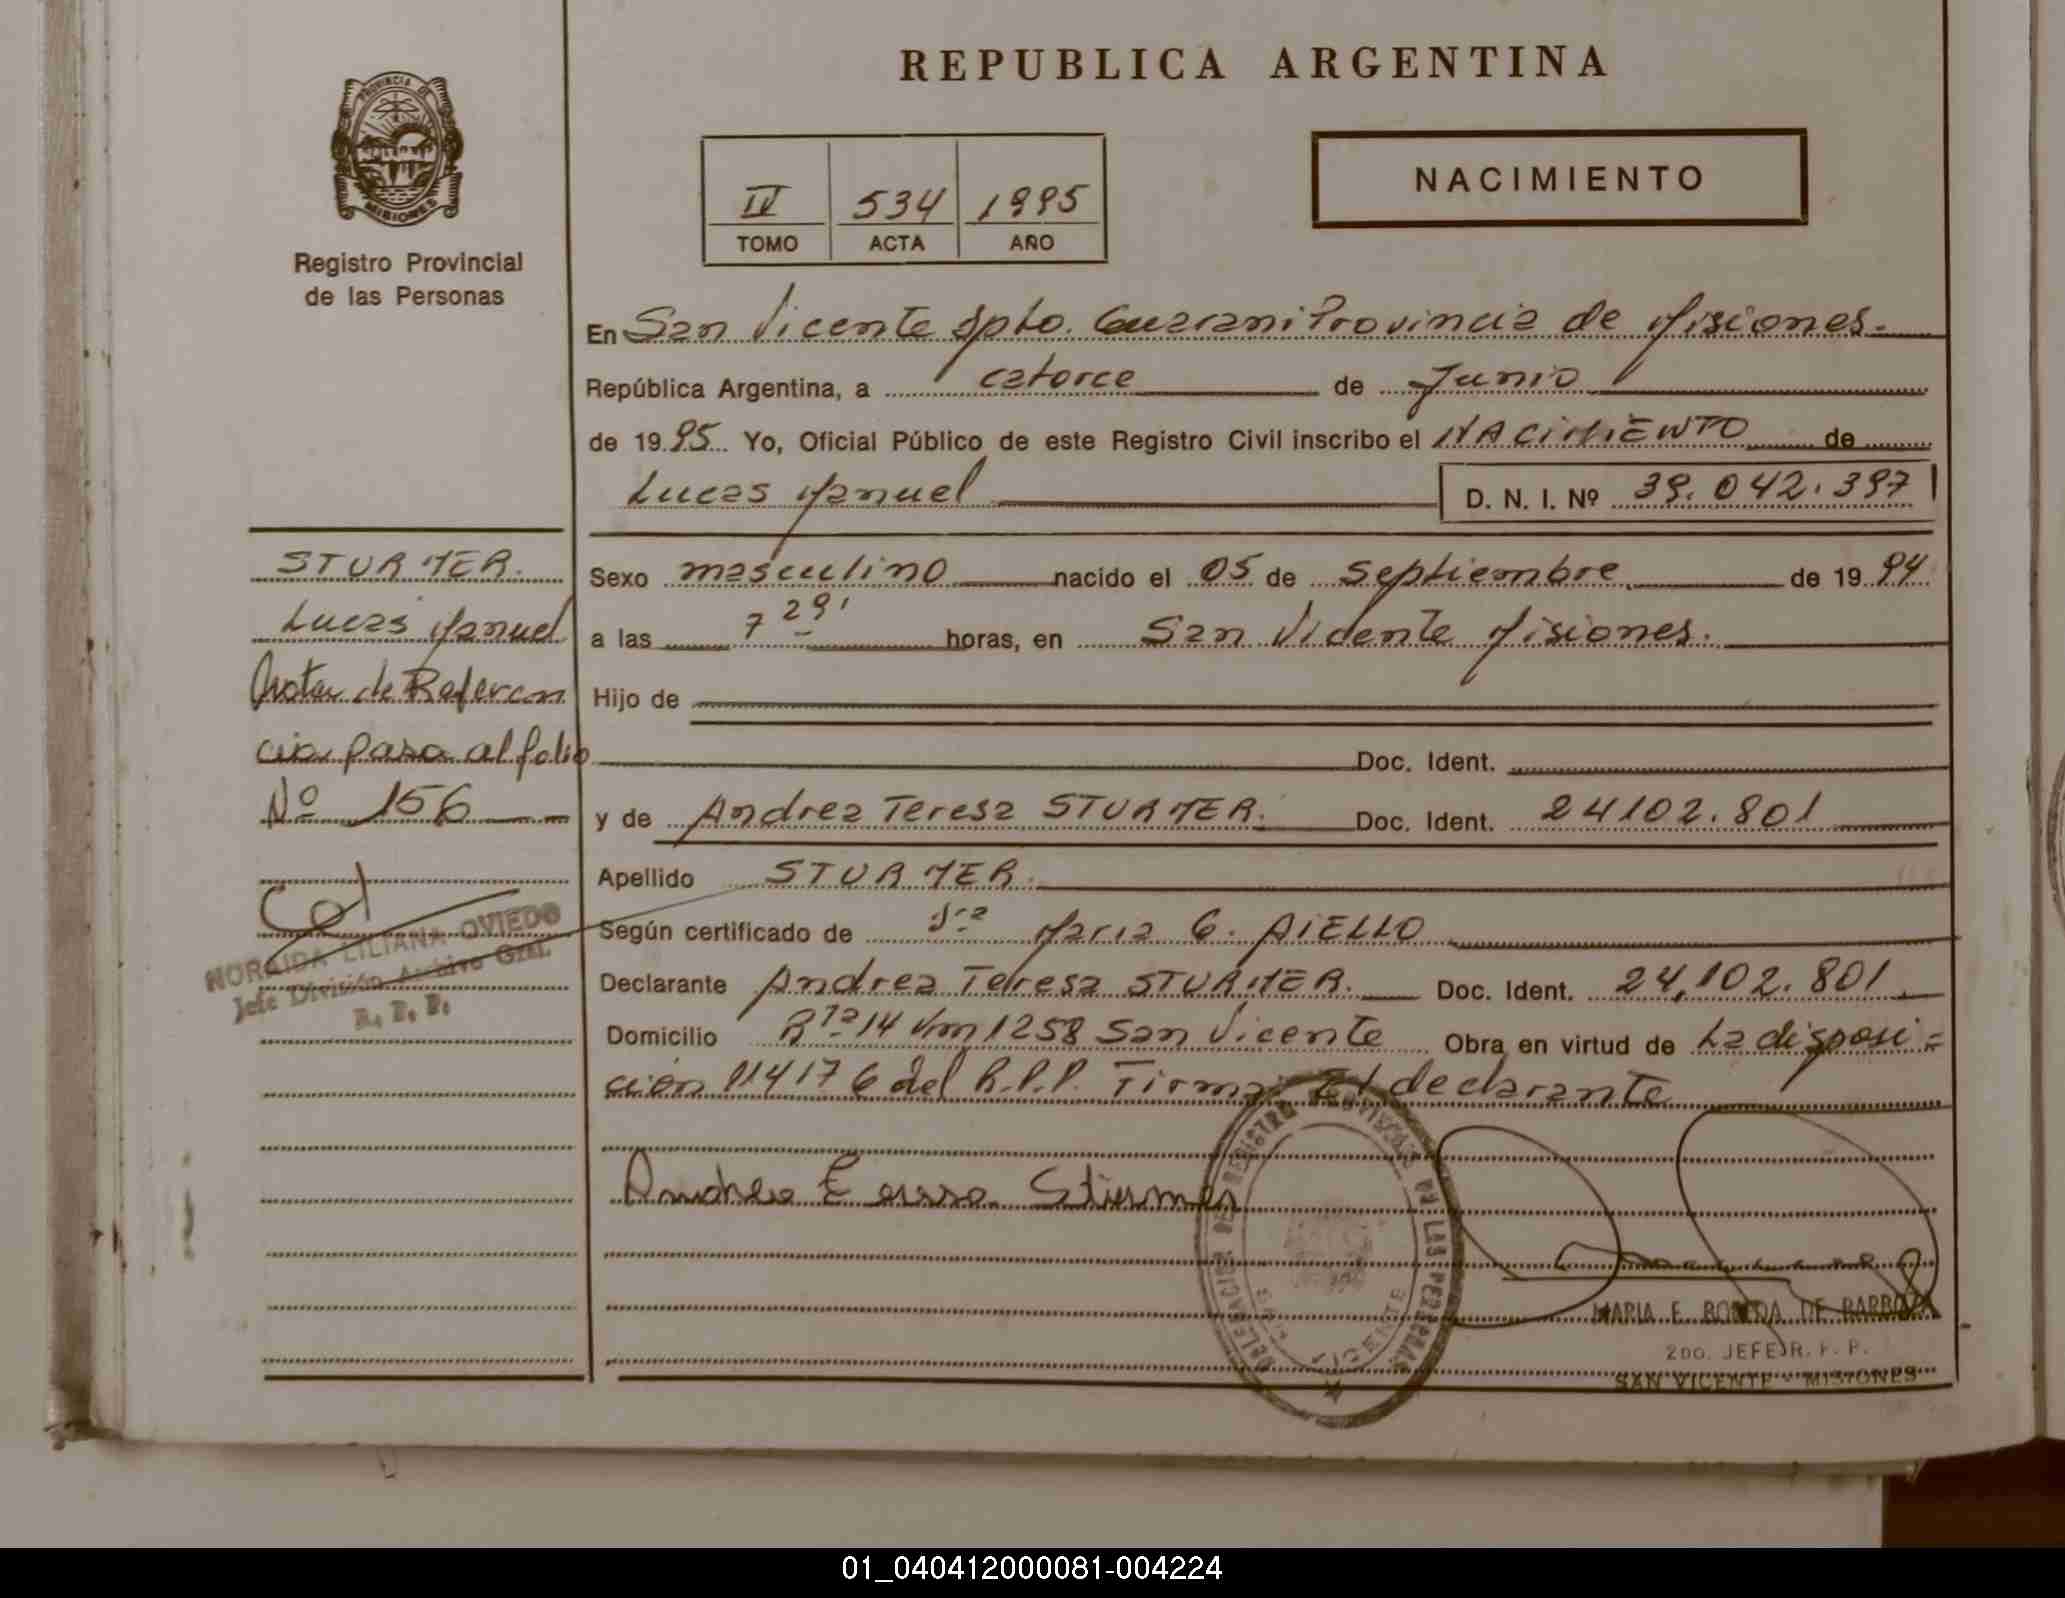 REPUBLICA ARGENTINA
PROVINCIA DE
MISIONES
Registro Provincial
de las Personas
IV 534 1995
TOMO ACTA AÑO
NACIMIENTO
En San Vicente Dpto. Guarani Provincia de Misiones.
República Argentina, a catorce de Junio
de 1995 Yo, Oficial Público de este Registro Civil inscribo el NACIMIENTO de
Lucas Manuel D. N. I. Nº 39.042.397
Sexo masculino nacido el 05 de septiembre de 1994
a las 7 29' horas, en San Vicente Misiones.
Hijo de
Doc. Ident.
y de Andrea Teresa STURMER. Doc. Ident. 24102.801
Apellido STURMER.
Según certificado de Dra Maria G. AIELLO
Declarante Andrea Teresa STURMER. Doc. Ident. 24,102.801
Domicilio Rta 14 Km 1258 San Vicente Obra en virtud de La disposi=
cion 114176 del R.P.P. Firma: El declarante
Andrea Teresa Sturmer
STURMER.
Lucas Manuel
Nota de Referen
cia pasa al folio
Nº 156
NORAIDA LILIANA OVIEDO
Jefe División Archivo Gral.
R. P. P.
DELEGACION DEL REGISTRO PROVINCIAL DE LAS PERSONAS
VICENTE
MARIA E. DE BARBOZA
2DO. JEFE R. P. P.
SAN VICENTE - MISIONES
01_040412000081-004224